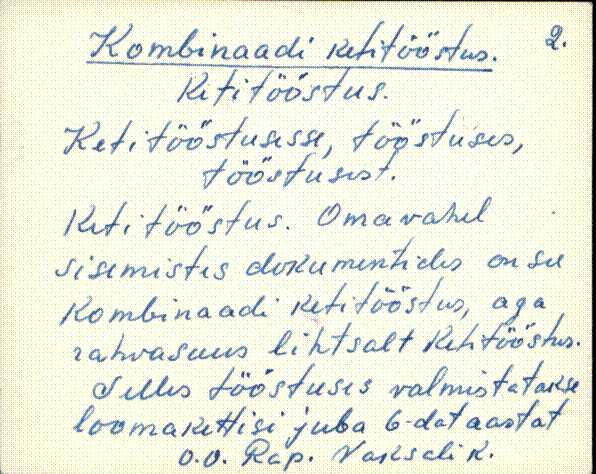 2.
Kombinaadi ketitööstus.
Ketitööstus.
Ketitööstusesse, tööstuses,
tööstusest.
Ketitööstus. Omavahel
sisemistes dokumentides on see
Kombinaadi ketitööstus, aga
rahvasuus lihtsalt Ketitööstus.
Selles tööstuses valmistatakse
loomakettisi juba 6-dat aastat
o.o. Rap. Vaksalik.